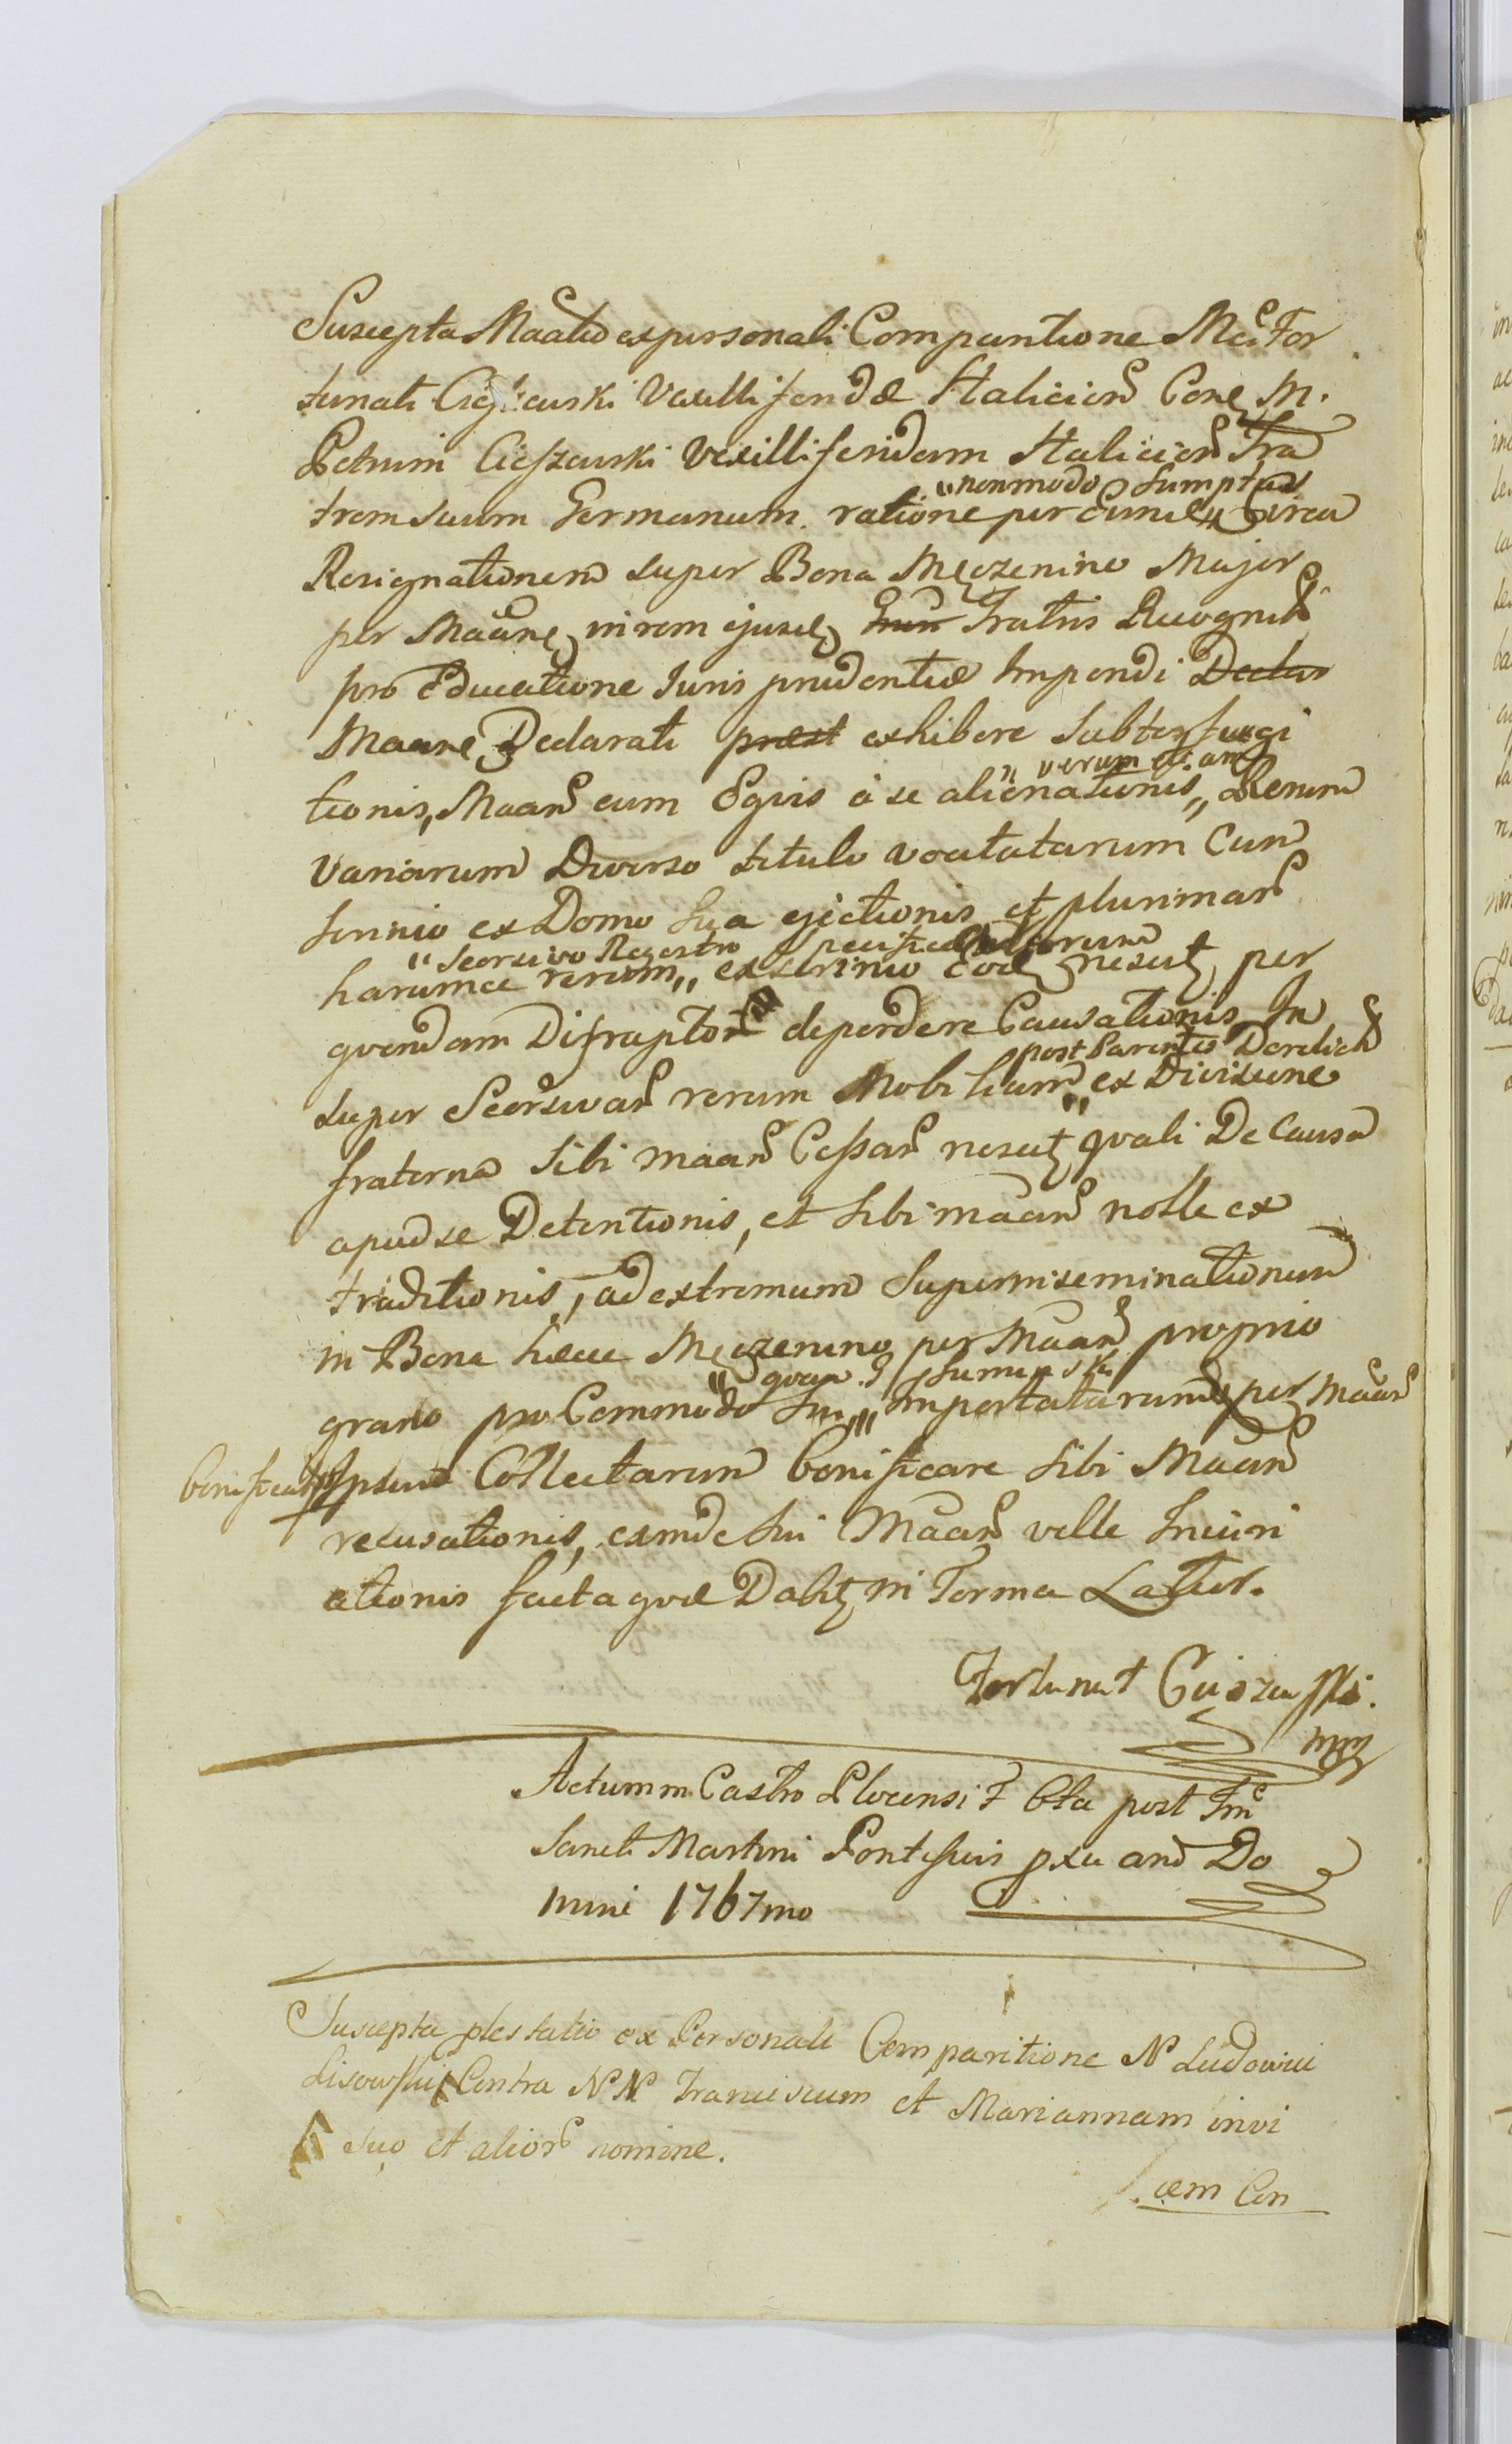 Suscepta Maãtio ex personali Comparitione Mci For
tunati Cieszewski Vexilliferidæ Halicien Conẽ M.
Petrum Cieszewski Vexilliferidam Halicien Fra
trem suum Germanum ratione per eund "nonmodo Sumptus" Circa
Resignationem super Bona Męczenino Major
per Maañe in rem ejusd Fratris Recognit
pro Educatione Juris prudentiæ Impendi
Maañe Declarati præst exhibere Subterfugi
tionis, Maan eum Eqvis a se alienationis "verum etiam" Rerum
variarum Diverso titulo vocitatarum Cum
scrinio ex Domo Sua ejectionis et plurimar
harumce rerum "Seorsivo Regestro specificatarum" ex scrinio eod nescit per
qvendam Disraptor deperdere Causationis In
super Seorsivar rerum Mobilium "post Parentes Derelict" ex Divisione
fraterna Sibi maan Cessar nescit qvali De Causa
apud se Detentionis, et Sibi maan nolle ex
traditionis, ad extremum Superinseminationum
in Bona hæce Męczenino per Maan proprio
grano pro Commodo Sui Importatarum per maan
bonificat Ipsum Collectarum bonificare Sibi Maan
recusationis, exinde Sui Maan velle Injuri
ationis facta qvæ Dabit in Forma Latior.
Fortunat Cieszewski
mp
Actum in Castro Plocensi F 6ta post Fm
Sancti Martini Pontificis pxa ano Do
mini 1767mo
Suscepta ptestatio ex Personali Comparitione N Ludovici
Lisowski Contra NN Franciscum et Mariannam invi
suo et alior nomine.
cem Con